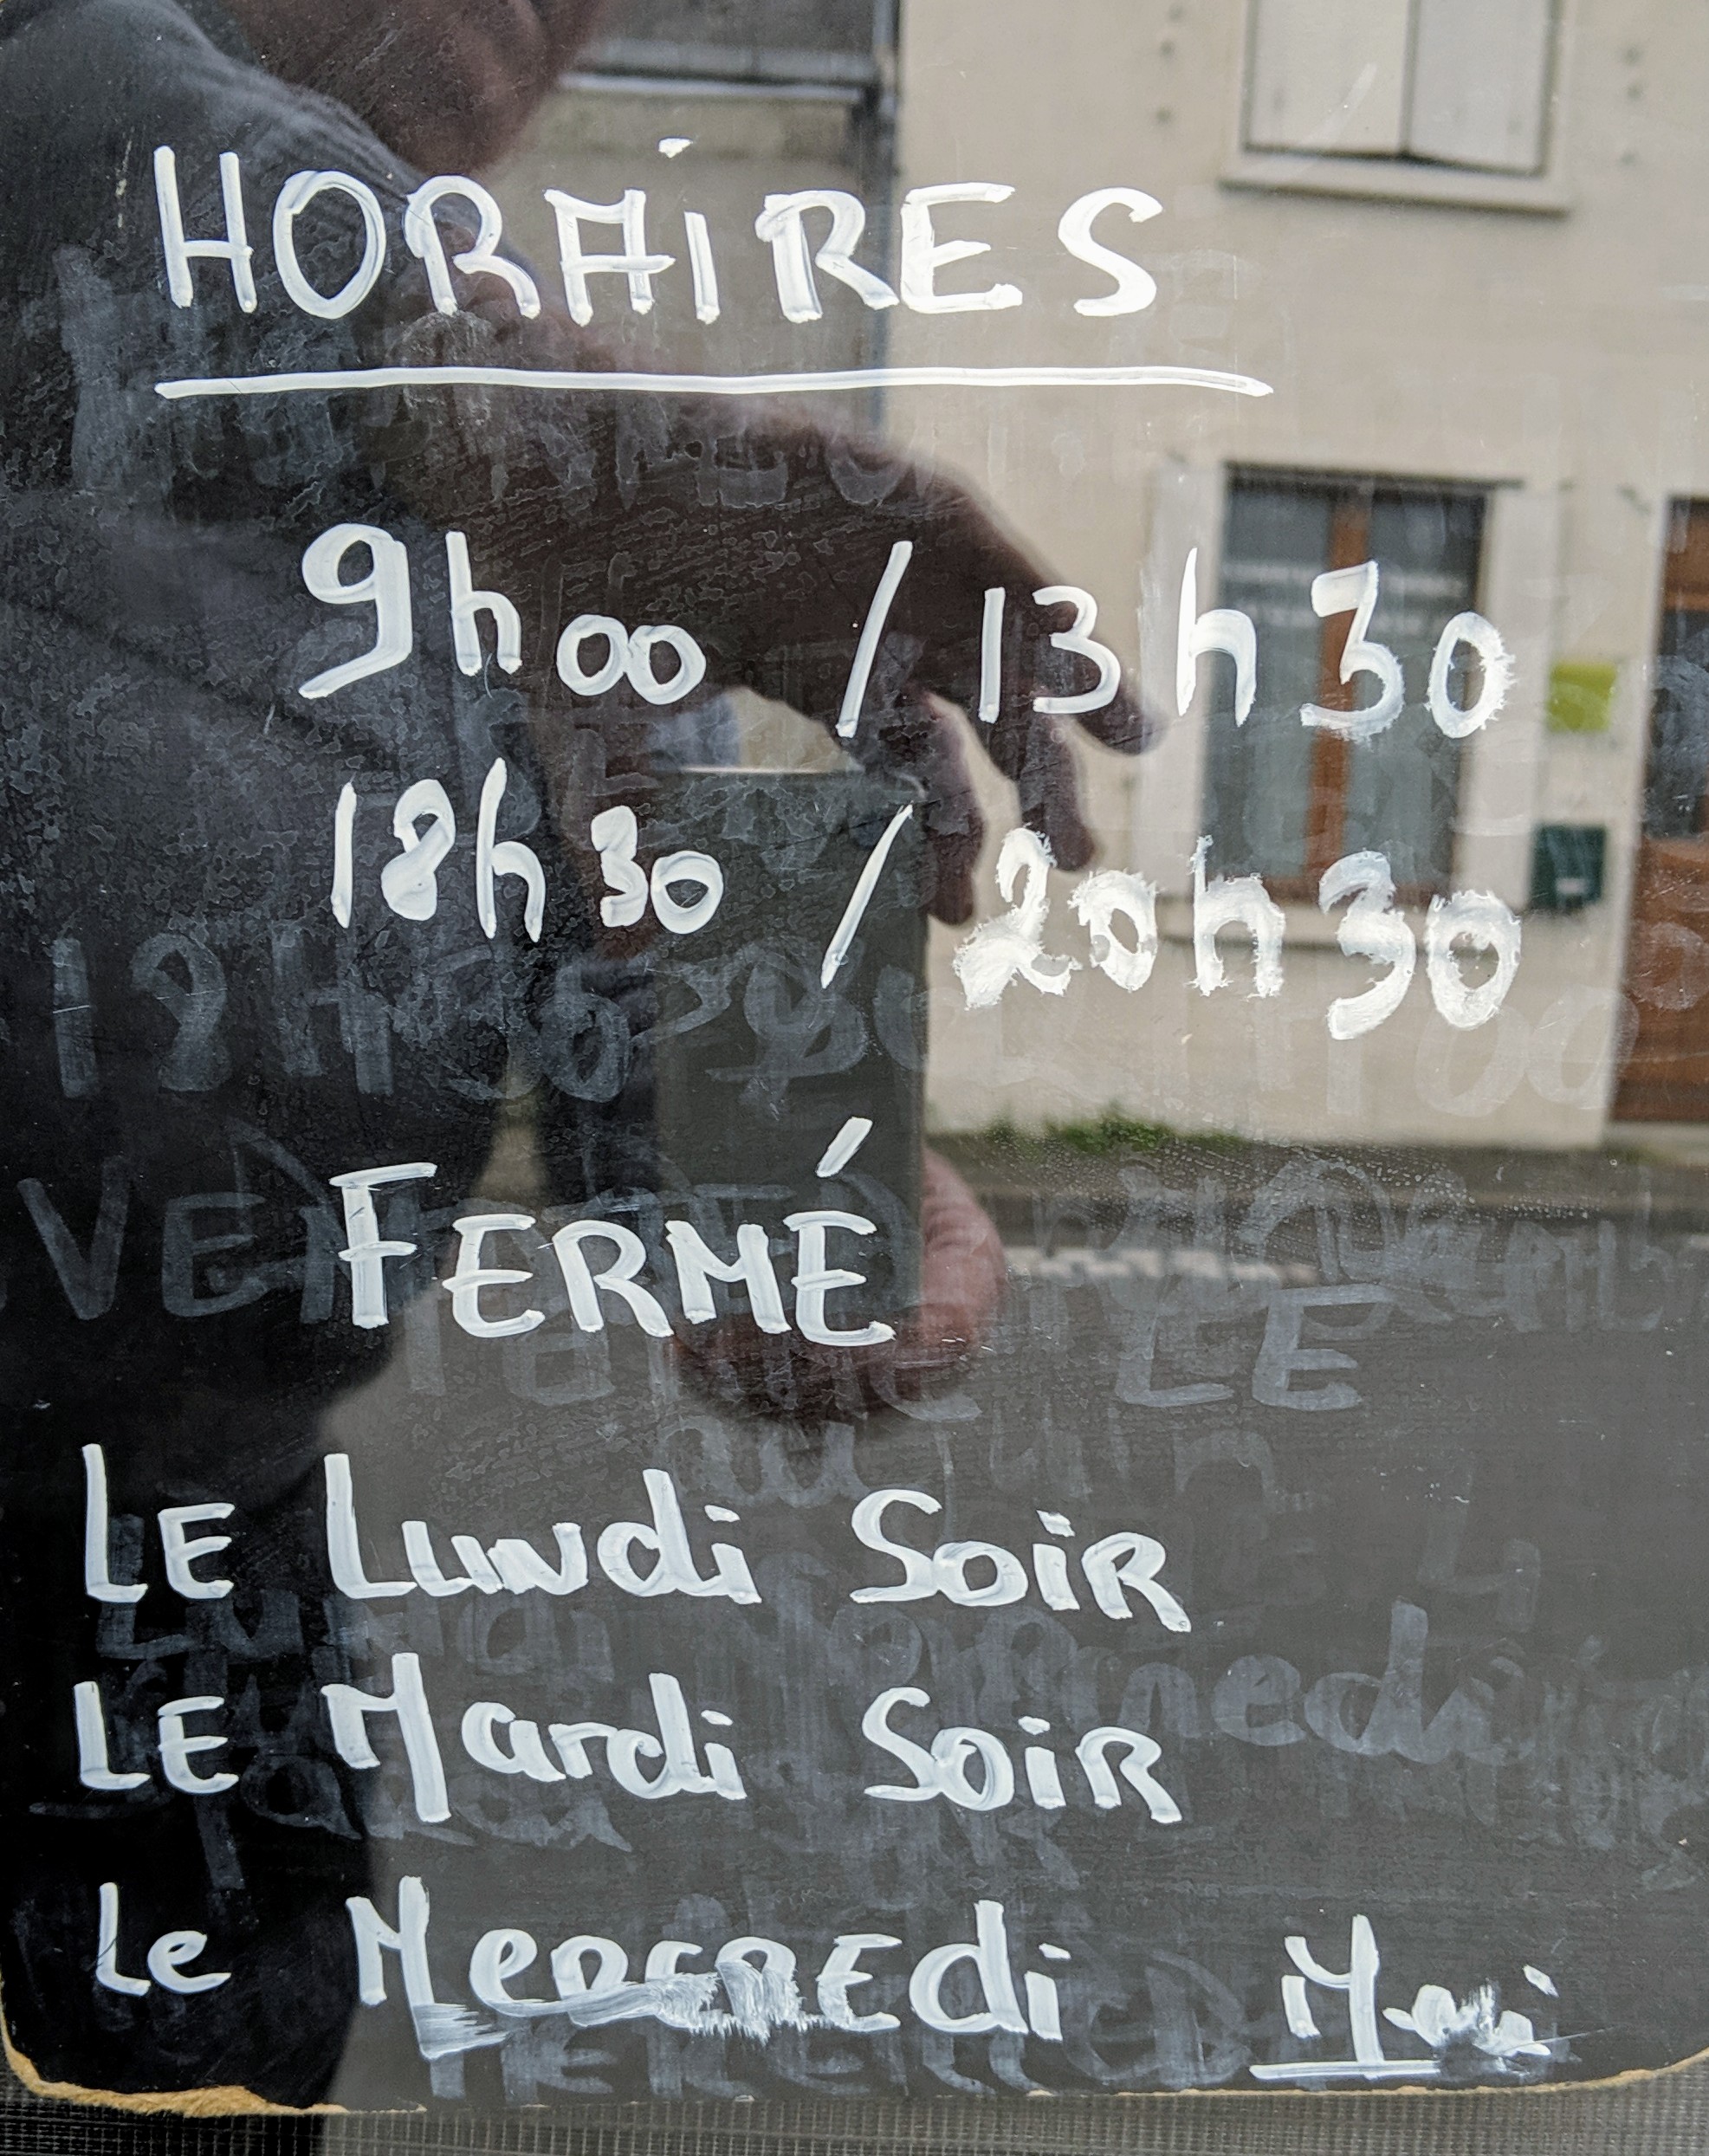 HORAiRES
9h00 / 13h30
18h30 / 20h30
FERMÉ
LE Lundi SoiR
LE Mardi SoiR
Le MeRCREdi